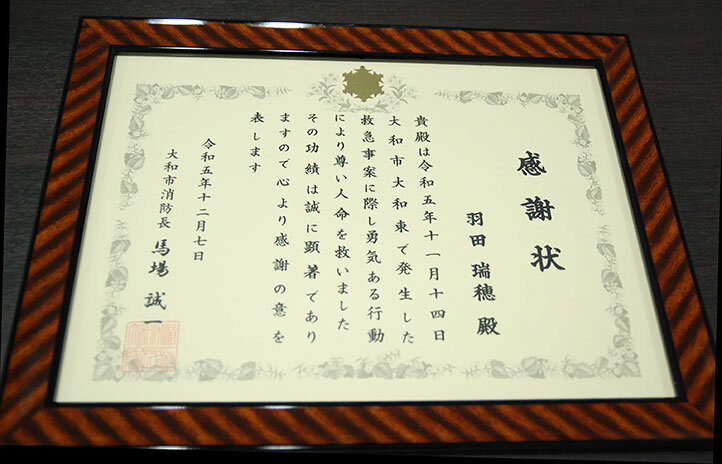 感謝状
羽田 瑞穂 殿
貴殿は令和五年十一月十四日
大和市大和東で発生した
救急事案に際し勇気ある行動
により尊い人命を救いました
その功績は誠に顕著であり
ますので心より感謝の意を
表します
令和五年十二月七日
大和市消防長 馬場 誠一